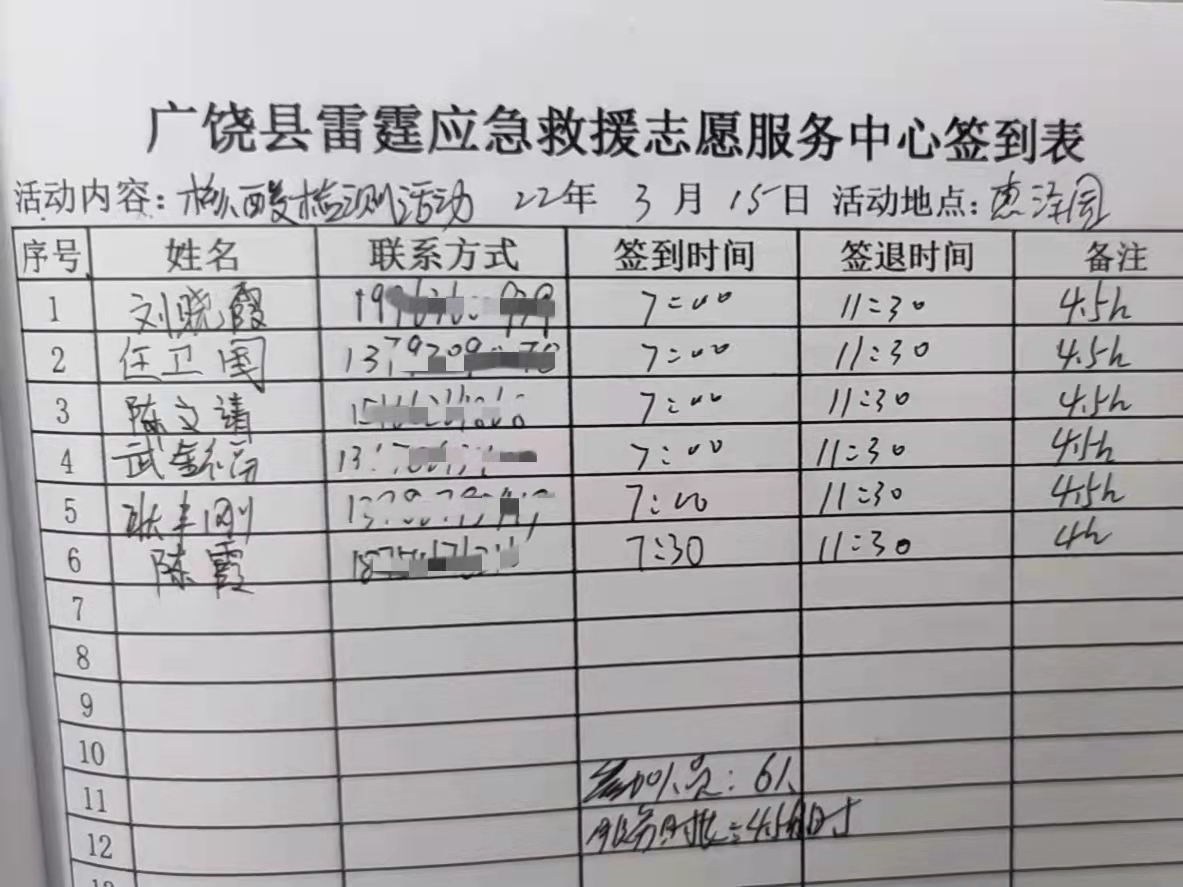 广饶县雷霆应急救援志愿服务中心签到表
活动内容：核酸检测活动 22年 3月 15日 活动地点：惠泽园
序号 姓名 联系方式 签到时间 签退时间 备注
1 刘晓霞 7:00 11:30 4.5h
2 任卫国 7:00 11:30 4.5h
3 陈文靖 7:00 11:30 4.5h
4 武 7:00 11:30 4.5h
5 7:00 11:30 4.5h
6 陈霞 7:30 11:30 4h
7
8
9
10
11 参加人员：6人
12 服务时长：4.5小时